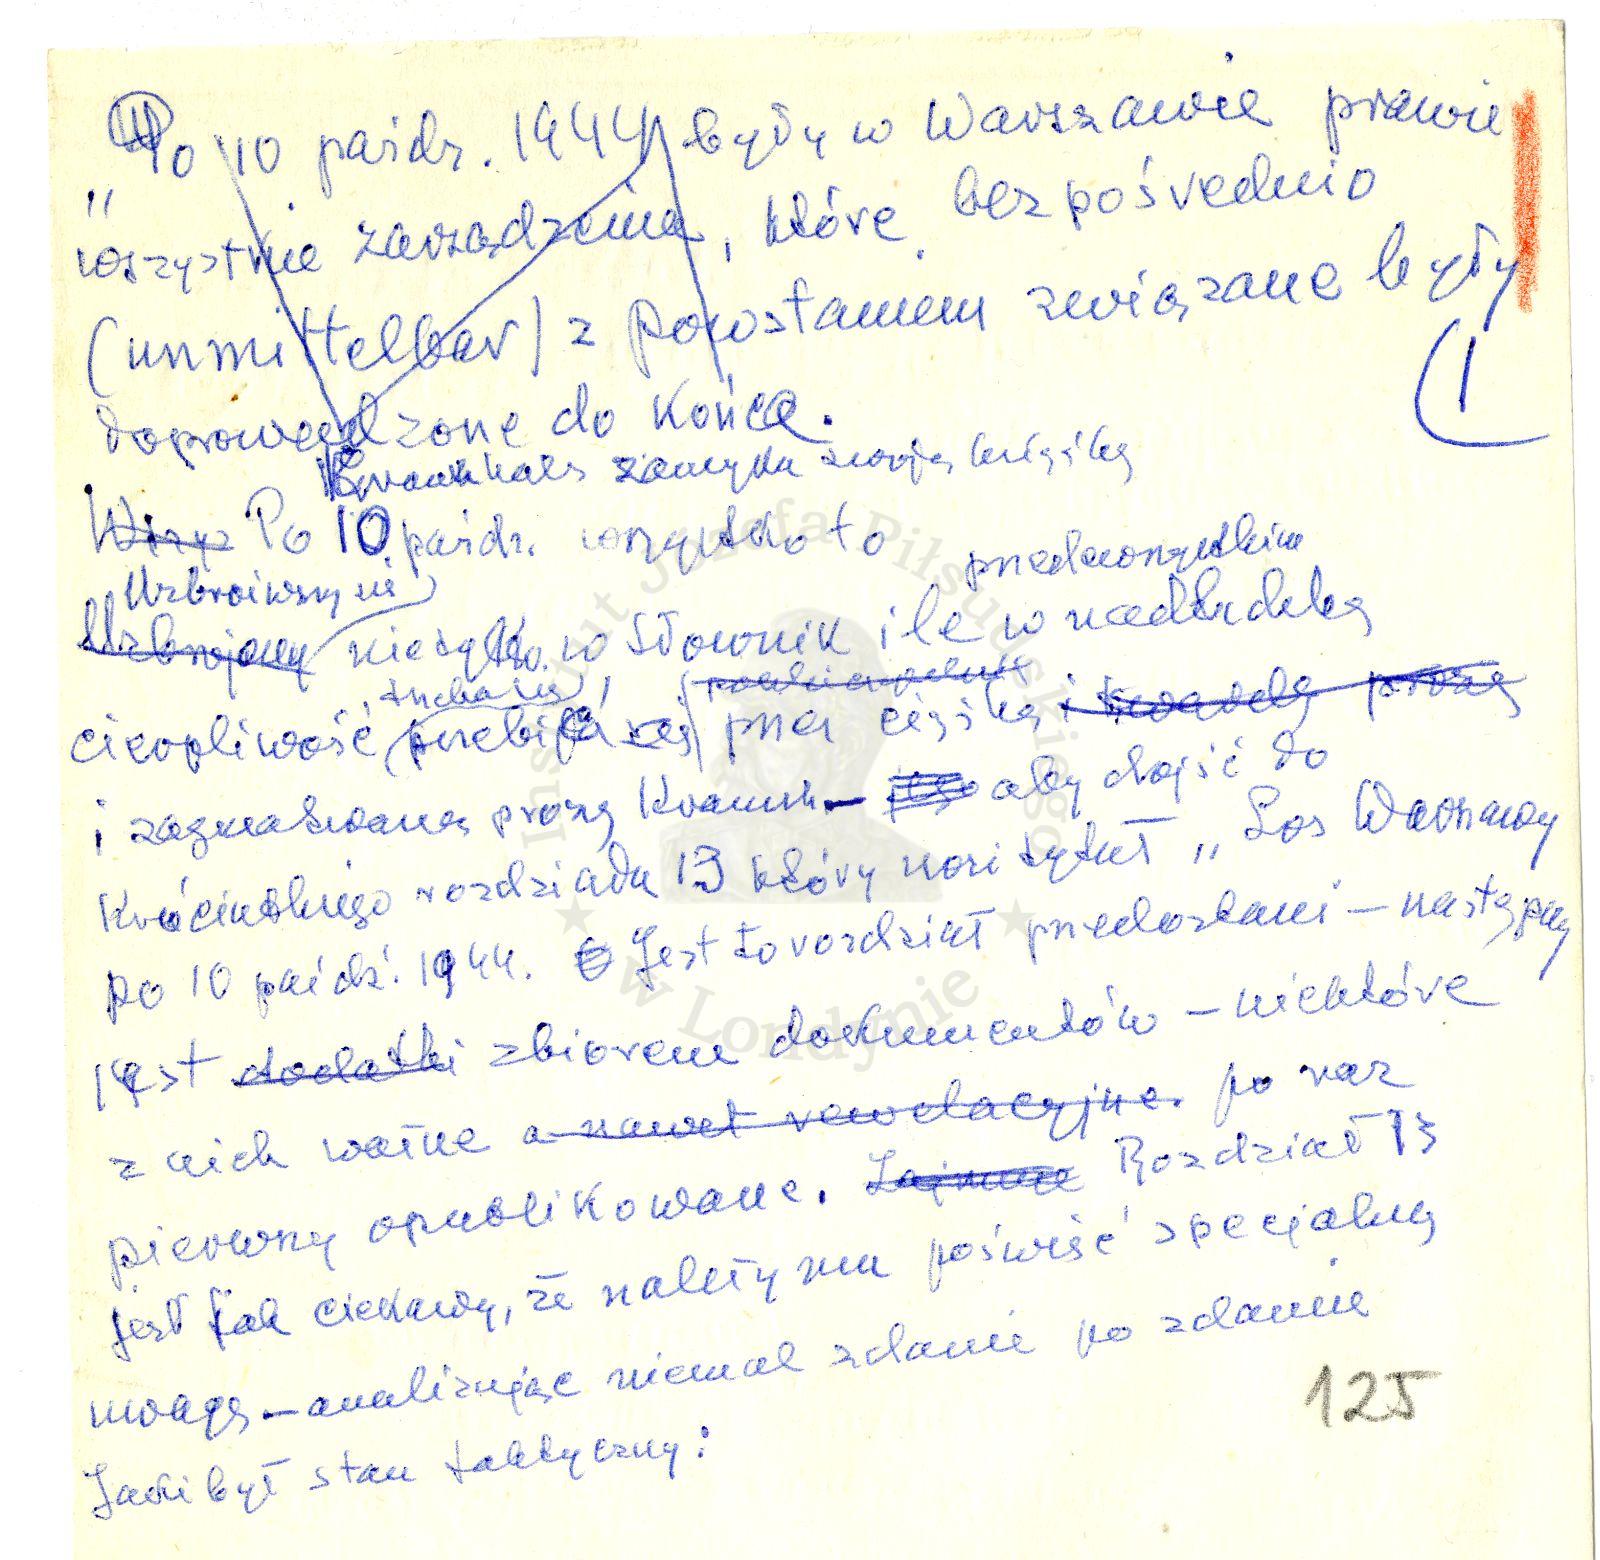 Po 10 paźdz. 1944 były w Warszawie prawie
„ wszystkie zarządzenia, które bezpośrednio
(unmittelbar) z powstaniem związane były
doprowadzone do końca.
(1
zamyka swoją książkę
Po 10 paźdz. wszystko to
przedewszystkim
Uzbroiwszy się
Uzbrojony nie tylko w słownik ile w nadludzką
cierpliwość, przebijać się przez ciężką i twardą prozą
i zagmatwaną prozę Krannh – aby dojść do
króciutkiego rozdziału 13 który nosi tytuł „Los Warszawy
po 10 paźdź. 1944. Jest to rozdział przedostani – następny
jest dodatki zbiorem dokumentów – niektóre
z nich ważne a nawet rewelacyjne. po raz
pierwszy opublikowane. Rozdział 13
jest tak ciekawy, że należy mu poświęć specjalną
uwagę – analizując niemal zdanie po zdanie
Jaki był stan faktyczny:
125
Instytut Józefa Piłsudskiego
w Londynie